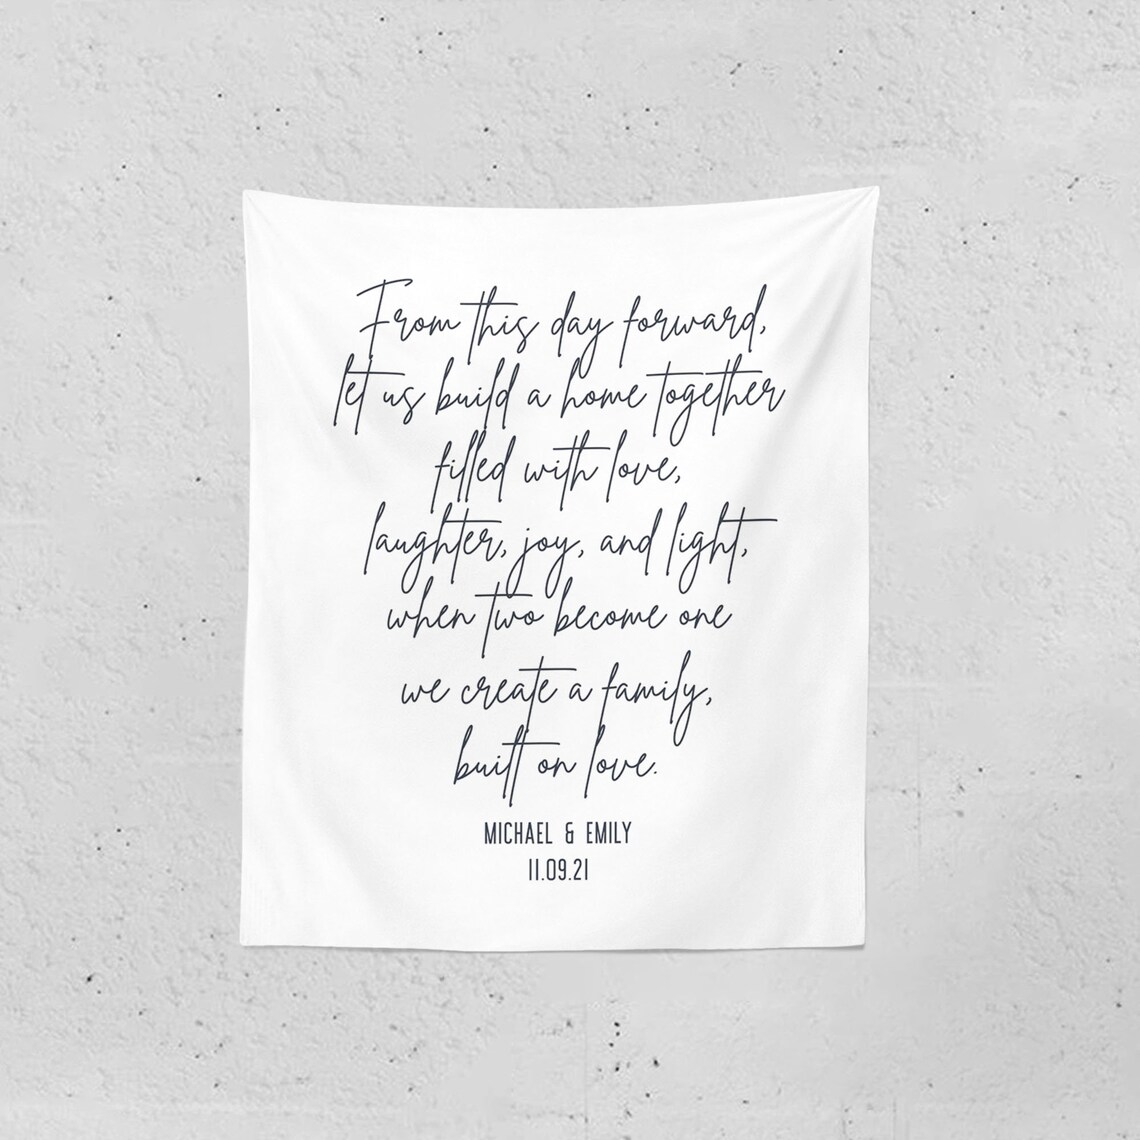 From this day forward,
let us build a home together
filled with love,
laughter, joy, and light,
when two become one
we create a family,
built on love.
MICHAEL & EMILY
11.09.21